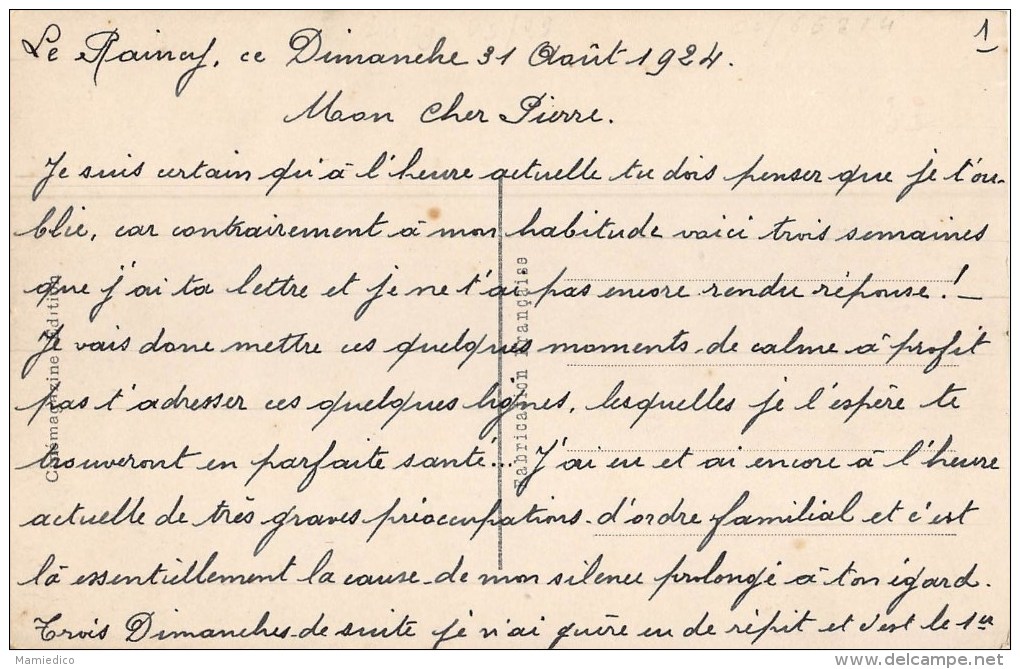 1
Le Raincy, ce Dimanche 31 Août 1924.
Mon Cher Pierre.
Je suis certain qu'à l'heure actuelle tu dois penser que je t'ou-
blie, car contrairement à mon habitude voici trois semaines
que j'ai ta lettre et je ne t'ai pas encore rendu réponse! –
Je vais donc mettre ces quelques moments de calme à profit
pas t'adresser ces quelques lignes, lesquelles je l'espère te
trouveront en parfaite santé... J'ai eu et ai encore à l'heure
actuelle de très graves préoccupations d'ordre familial et c'est
là essentiellement la cause de mon silence prolongé à ton égard.
Trois Dimanches de suite je n'ai guère eu de répit et c'est le 1er
Cinémagazine Edition
Fabrication Française
Mamiedico
http://www.delcampe.net